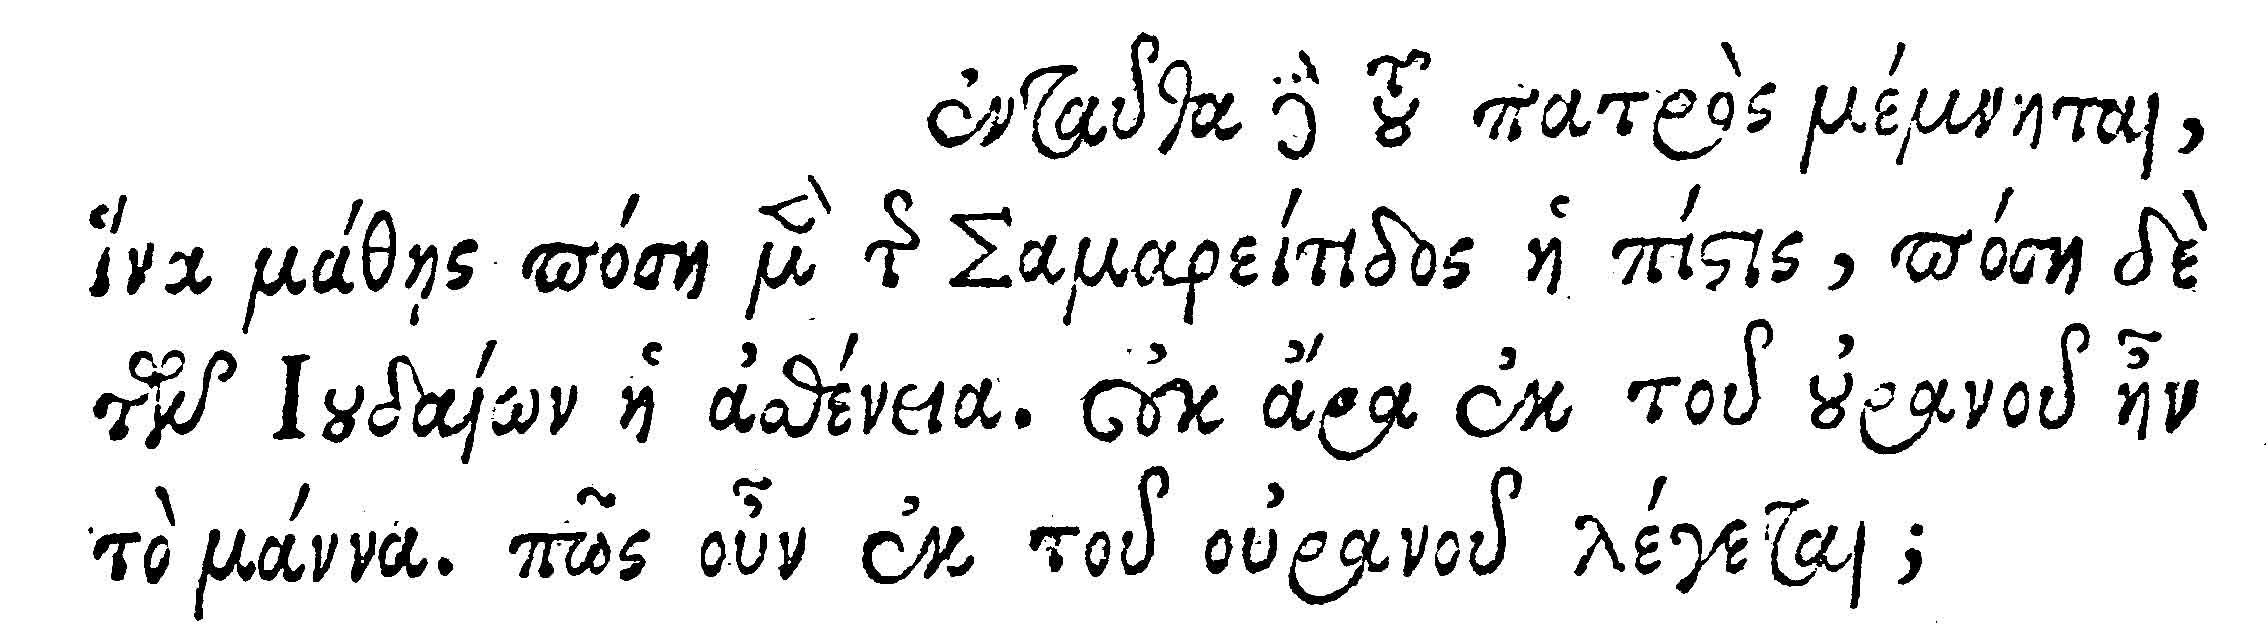 ἐνταῦθα δὲ τοῦ πατρὸς μέμνηται,
ἵνα μάθῃς πόση μὲν τῆς Σαμαρείτιδος ἡ πίστις, πόση δὲ
τῶν Ἰουδαίων ἡ ἀσθένεια. οὐκ ἄρα ἐκ τοῦ οὐρανοῦ ἦν
τὸ μάννα. πῶς οὖν ἐκ τοῦ οὐρανοῦ λέγεται;